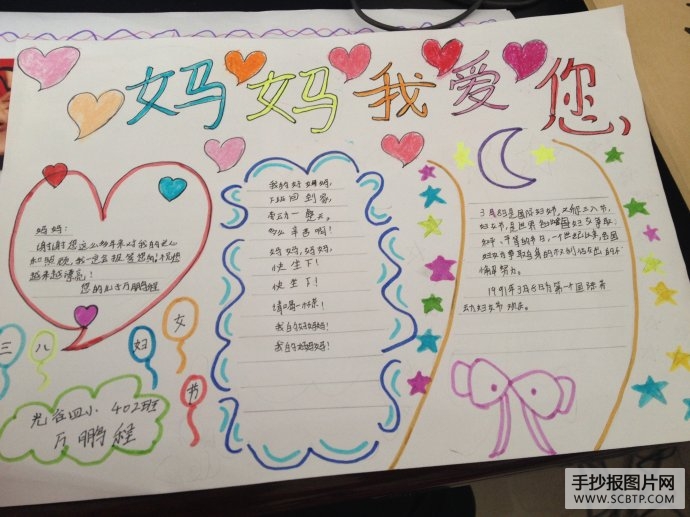 妈妈我爱您
妈妈:
谢谢您这么多年来对我的关心
和照顾,我一定会报答您的!祝您
越来越漂亮!
您的儿子万鹏程
三八妇女节
光谷四小 402班
万鹏程
我的好妈妈,
下班回到家,
劳动了一整天,
多么辛苦啊!
妈妈,妈妈,
快坐下!
快坐下!
请喝一杯茶!
我的好妈妈!
我的好妈妈!
3月8日是国际妇女节,又称三八节,
妇女节,是世界各国妇女争取
和平、平等的节日,一个世纪以来,各国
妇女为争取自身的权利作出的不
懈努力。
手抄报图片网
WWW.SCBTP.COM